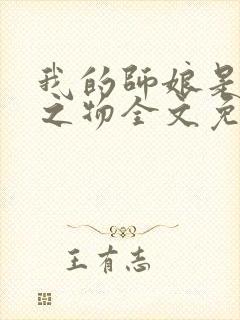 我的师娘是
之物全文免
王有志